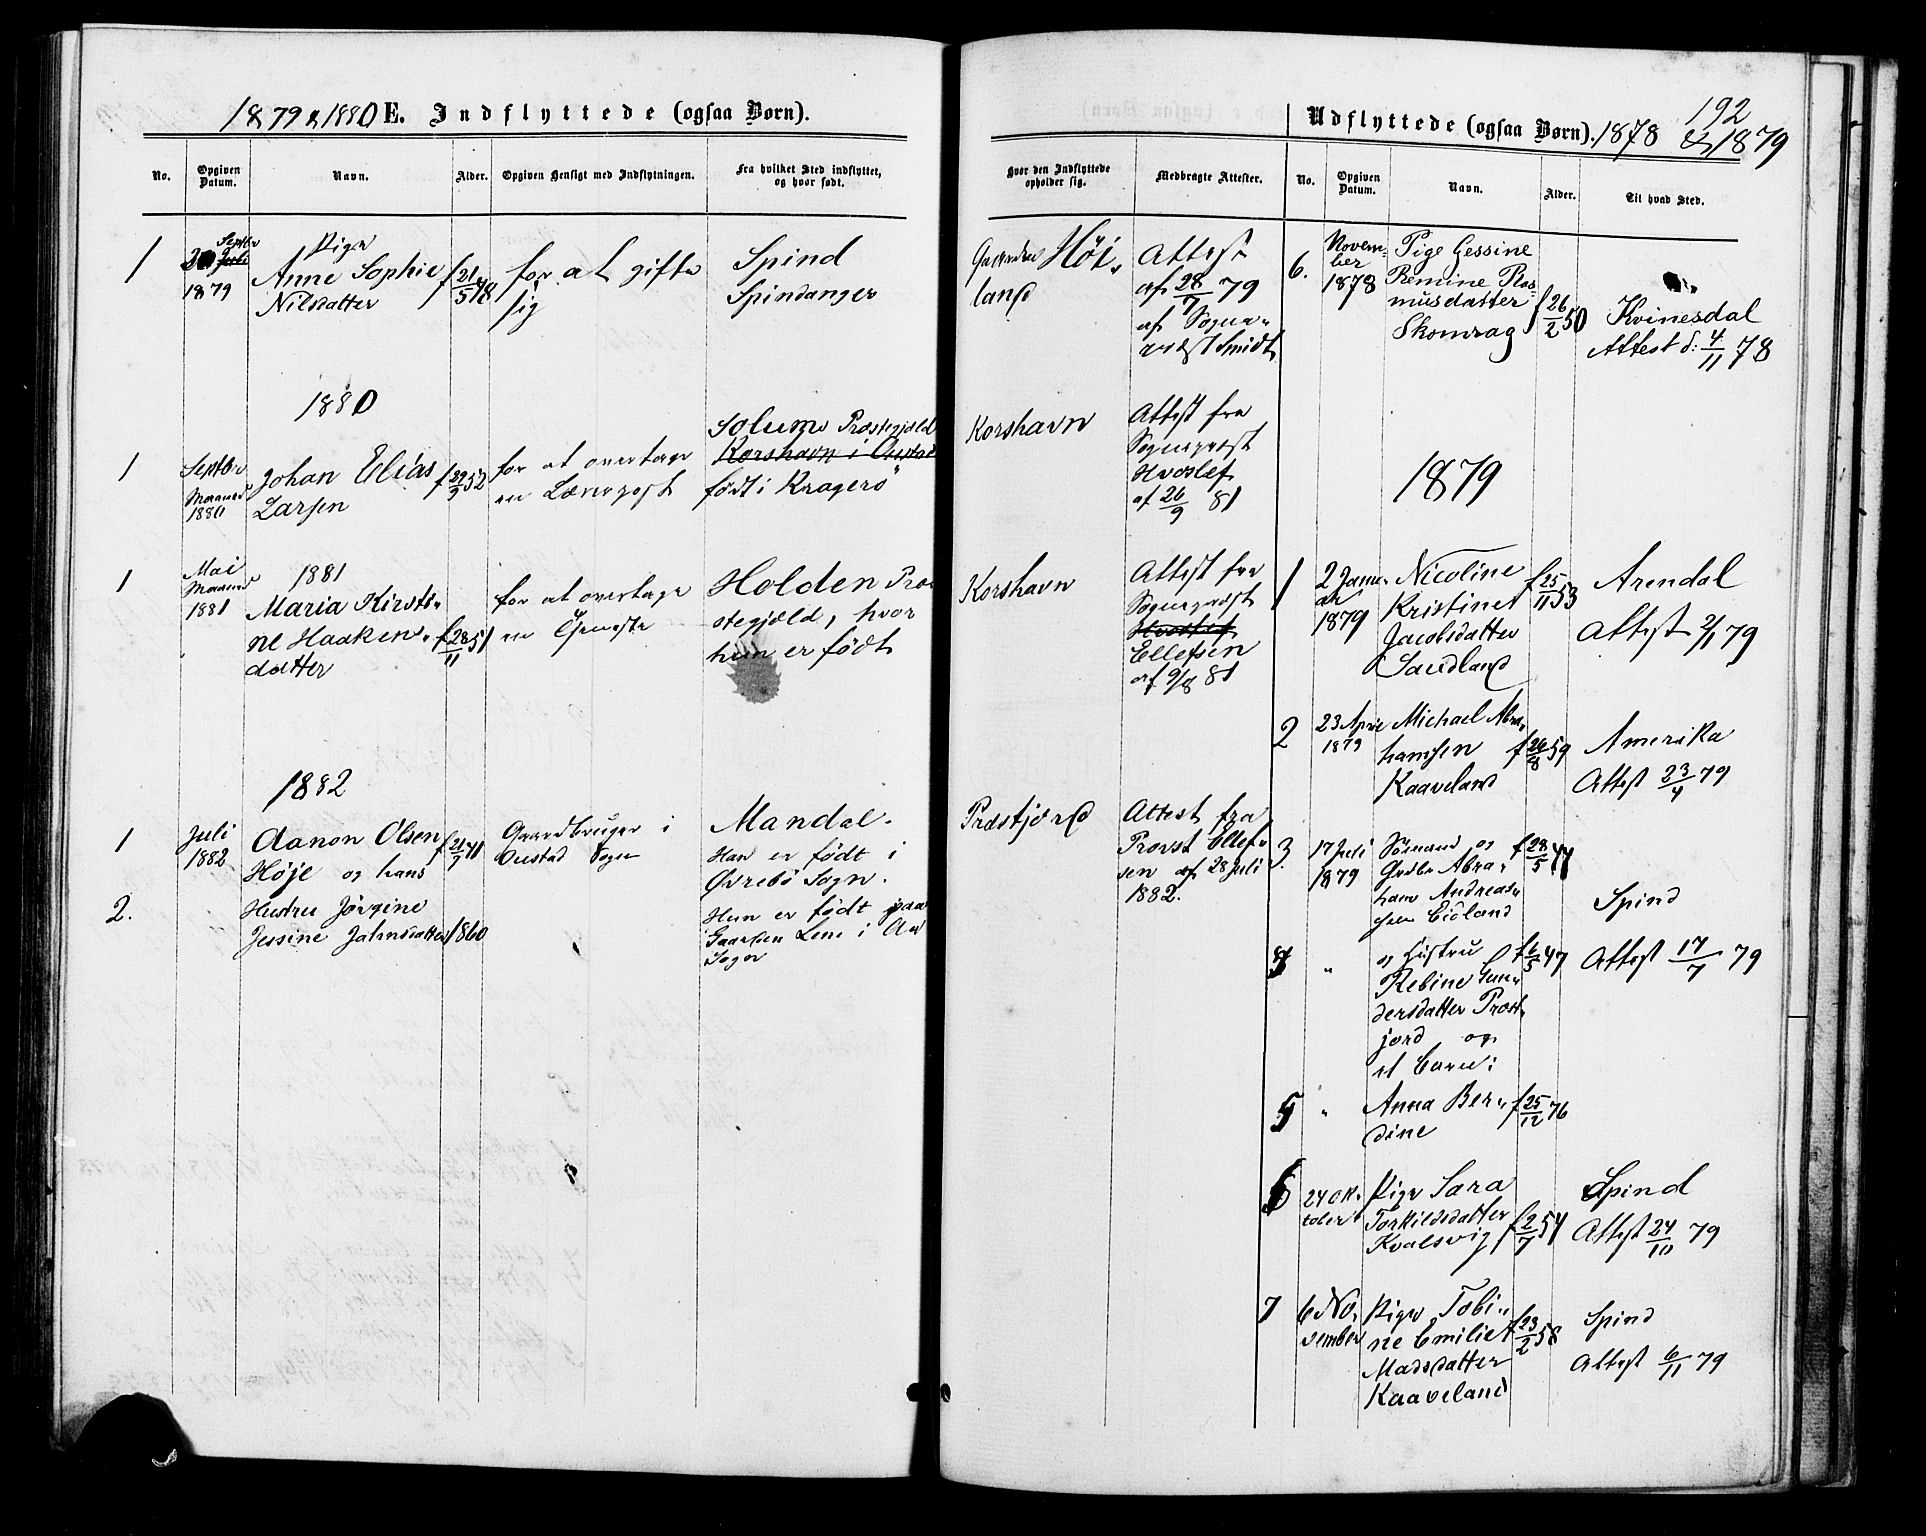 1879 & 1880 E. Indflyttede (ogsaa Børn).
No. Opgiven Datum. Navn. Alder. Opgiven Hensigt med Indflytningen. Fra hvilket Sted indflyttet, og hvor født.
1
Septbr
Juli
1879
Pige
Anne Sophie
Nilsdatter
f 21/5 48
for at gifte
sig
Spind
Spindanger
1880
1
Septbr
Maaned
1880
Johan Elias
Larsen
f 29/9 52
for at overtage
en Lærerpost
Solum Præstegjæld
Korshavn i Oustad
født i Kragerö
1
Mai
Maaned
1881
1881
Maria Kirsti-
ne Haakens-
datter
f 28/11 51
for at overtage
en Tjeneste
Holden Præ-
stegjæld, hvor
hun er født
1882
1
Juli
1882
Aanon Olsen
Høje og hans
f 21/7 41
Gaardbruger i
Oustad Sogn
Mandal.
Han er født i
Øvrebö Sogn.
2.
Hustru Jörgine
Jessine Jahnsdatter
1860
Hun er født paa
Gaarden Lene i Au
Sogn
192
Udflyttede (ogsaa Børn). 1878 & 1879
Hvor den Indflyttede opholder sig. Medbragte Attester. No. Opgiven Datum. Navn. Alder. Til hvad Sted.
Gaarden Höi-
land
Attest
af 28/7 79
af Sogne-
præst Smidt
Korshavn
Attest fra
Sognepræst
Hvoslef
af 26/9 81
Korshavn
Attest fra
Sognepræst
Hvoslef
Ellefsen
af 9/8 81
Præstjord
Attest fra
Provst Ellef-
sen af 28 Juli
1882.
6.
Novem-
ber
1878
Pige Gessine
Remine Ras-
musdatter
Skomrag
f 26/2 50
Kvinesdal
Attest d: 4/11 78
1879
1
2 Janu-
ar
1879
Nicoline
Kristine
Jacobsdatter
Sandland
f 25/11 53
Arendal
Attest 2/1 79
2
23 April
1879
Michael Abra-
hamsen
Kaaveland
f 26/8 59
Amerika
Attest 23/4 79
3.
17 Juli
1879
Sömand og
Abra-
ham Andreas-
sen Eidland
f 28/5 44
Spind
4
"
og Hustru
Rebine Gun-
dersdatter Præst-
jord og
et Barn:
f 6/5 47
Attest 17/7 79
5
"
Anna Ber-
dine
f 25/12 76
6
24 Ok-
tober
Pige Sara
Torkildsdatter
Kvalsvig
f 2/7 54
Spind
Attest 24/10 79
7
6 No-
vember
Pige Tobi-
ne Emilie
Madsdatter
Kaaveland
f 23/2 58
Spind
Attest 6/11 79